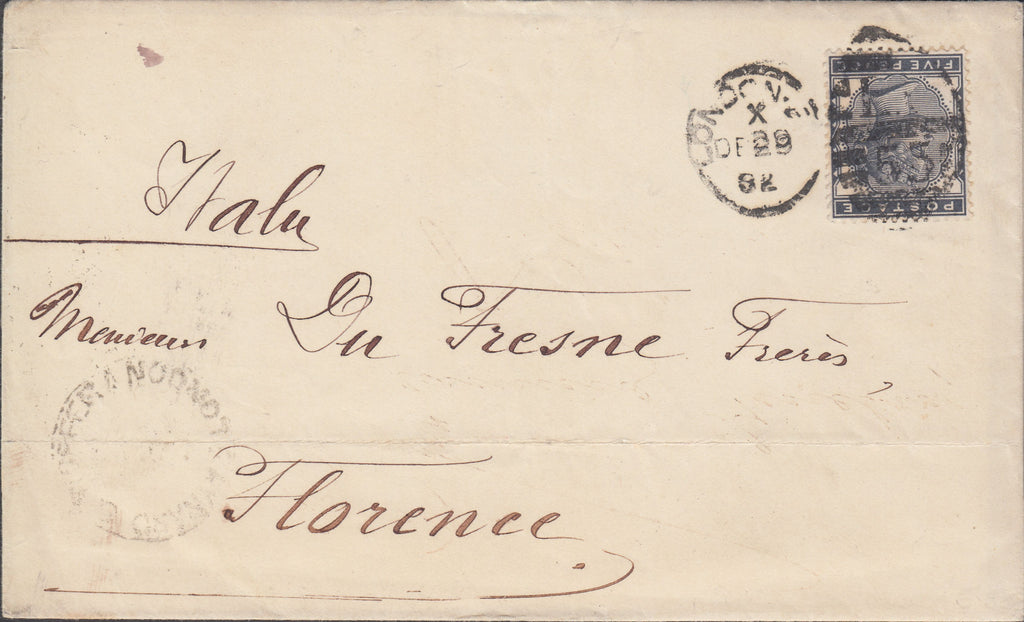 FIVE PENCE
POSTAGE
LONDON
X
DE 29
82
Italy
Messieurs Du Fresne Frerès,
Florence.
LONDON